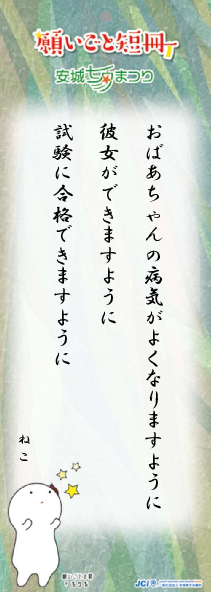 願いごと短冊
安城七夕まつり
おばあちゃんの病気がよくなりますように
彼女ができますように
試験に合格できますように
ねこ
JCI